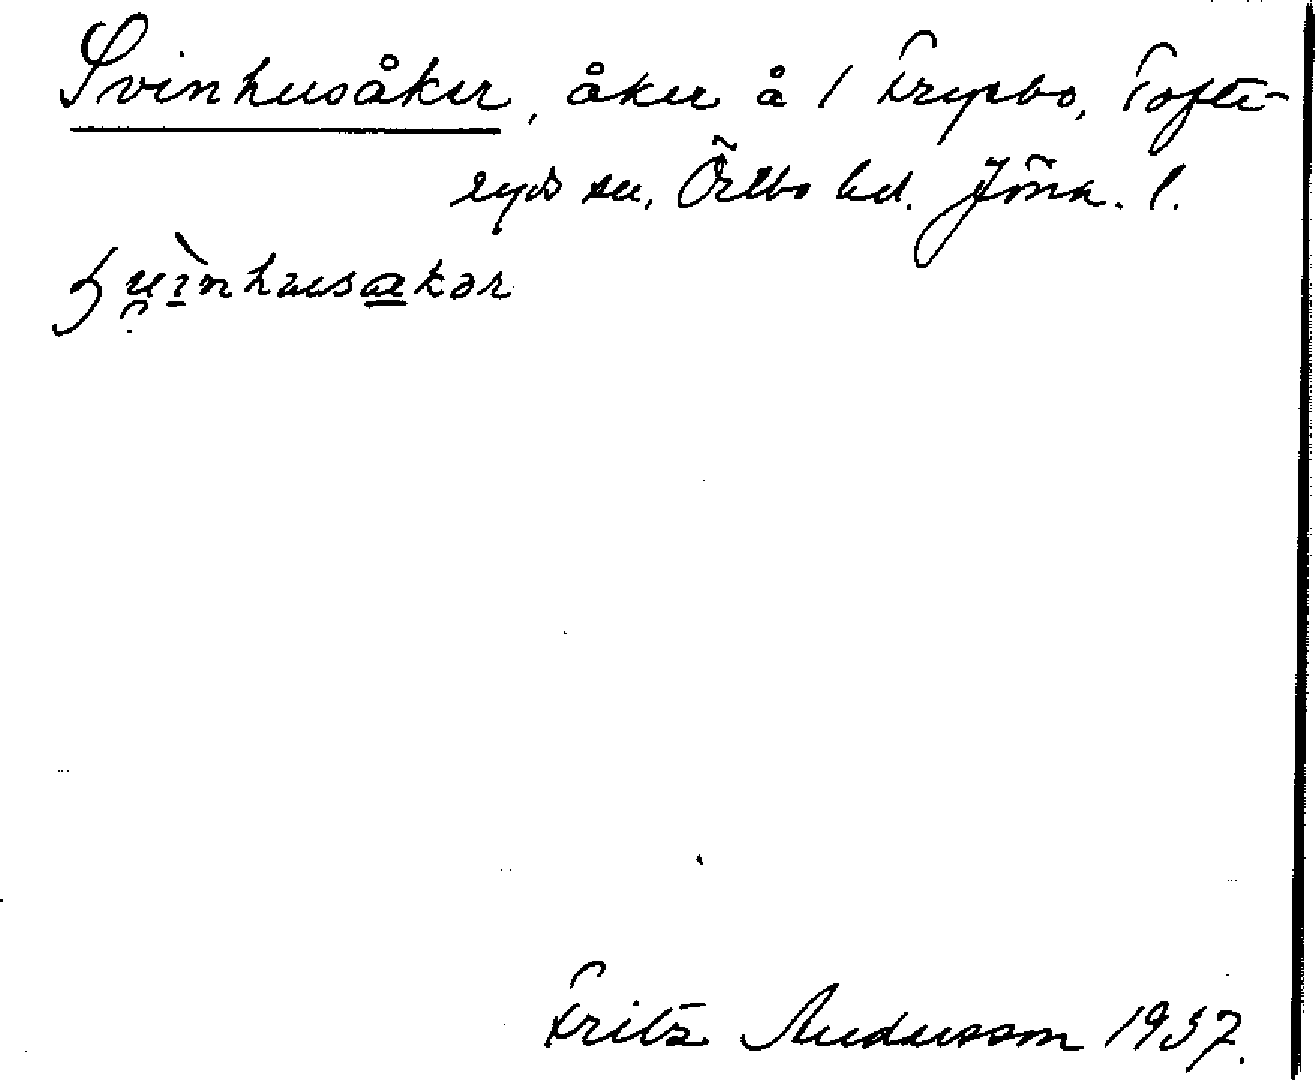 Svinhusåker, åker å 1 Frypbo, Tofte-
ryds sn, Östbo hd. Jönk. l.
su̯ìnhusakər
Fritz Andersson 1937.